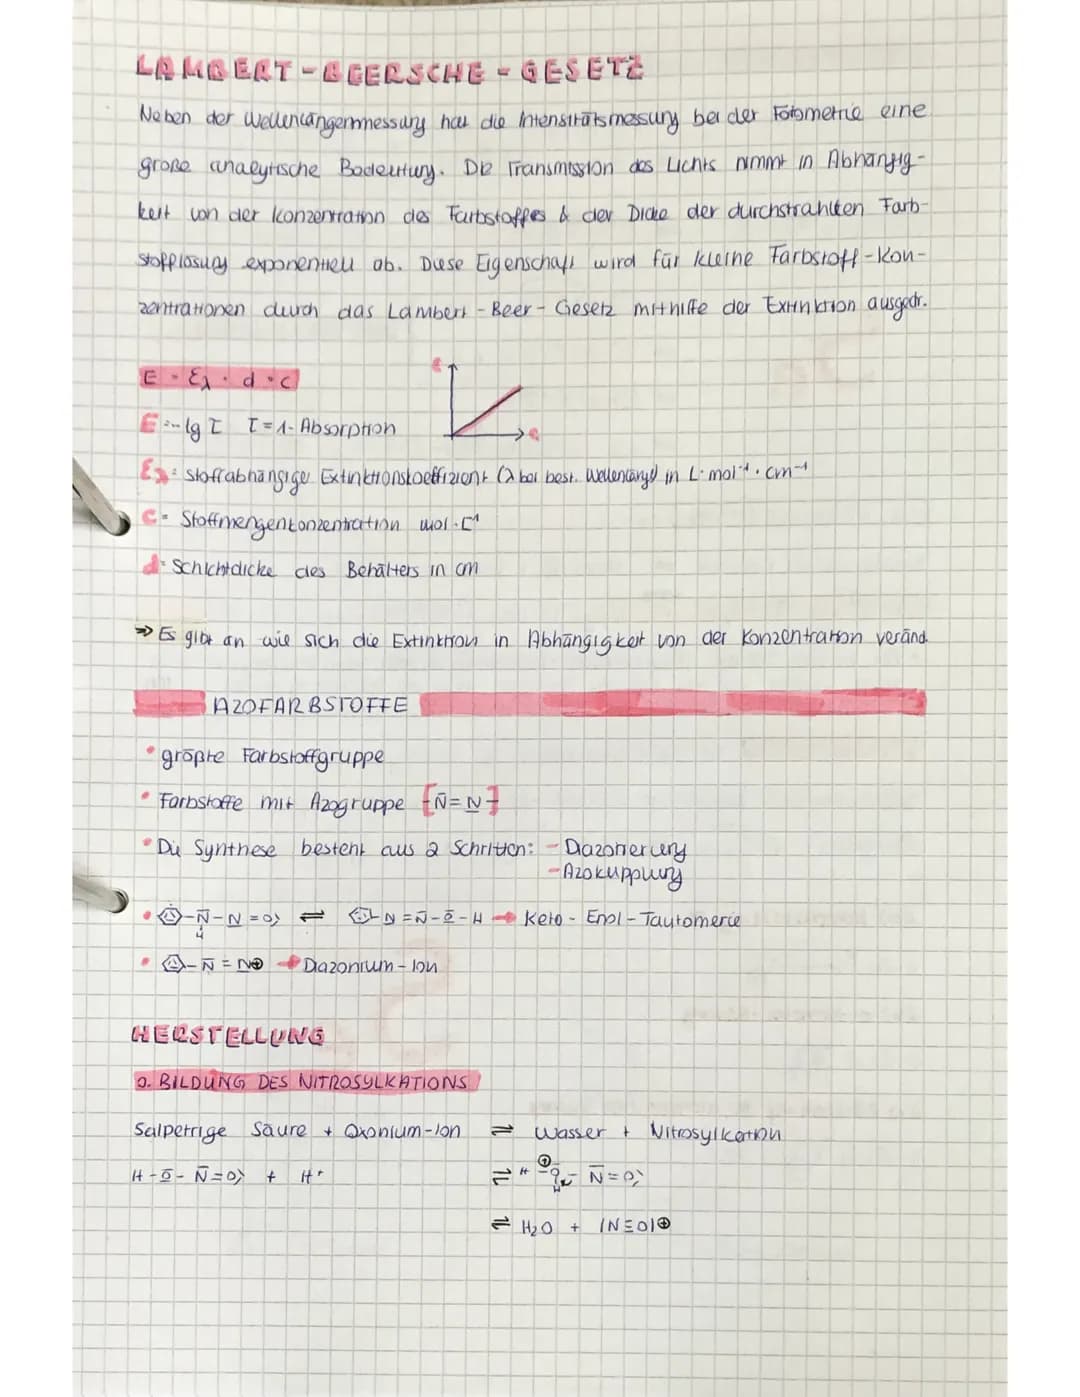 LAMBERT-BEERSCHE-GESETZ
Neben der Wellenlängenmessung hat die Intensitätsmessung bei der Fotometrie eine
große analytische Bedeutung. Die Transmission des Lichts nimmt in Abhängig-
keit von der Konzentration des Farbstoffes & der Dicke der durchstrahlten Farb-
stofflösung exponentiell ab. Diese Eigenschaft wird für kleine Farbstoff-Kon-
zentrationen durch das Lambert-Beer-Gesetz mithilfe der Extinktion ausgedr.
E = ελ · d · c
E
c
E = -lg τ τ = 1 - Absorption
ελ = stoffabhängiger Extinktionskoeffizient (λ bei best. Wellenlänge) in L·mol⁻¹·cm⁻¹
c = Stoffmengenkonzentration mol·L⁻¹
d = Schichtdicke des Behälters in cm
⇒ Es gibt an wie sich die Extinktion in Abhängigkeit von der Konzentration veränd.
AZOFARBSTOFFE
• größte Farbstoffgruppe
• Farbstoffe mit Azogruppe [-N̄=N̲-]
• Die Synthese besteht aus 2 Schritten: - Diazotierung
- Azokupplung
-N̄-N̲=O ⇌ -N̲=N̄-Ō-H → Keto-Enol-Tautomerie
H
-N̄=N̲⊕ → Diazonium-Ion
HERSTELLUNG
0. BILDUNG DES NITROSYLKATIONS
Salpetrige Säure + Oxonium-Ion ⇌ Wasser + Nitrosylkation
H-Ō̲-N̄=O⟩ + H⁺ ⇌ H-O⊕-N̄=O⟩
H
⇌ H₂O + |N≡O|⊕